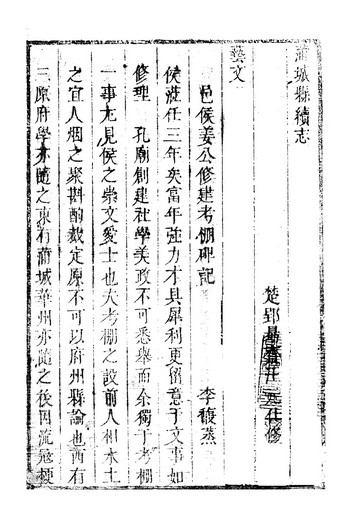 蒲城縣續志
楚郢
修
藝文
邑侯姜公修建考棚碑記
李馥蒸
侯蒞任三年矣富年強力才具犀利更留意于文事如
修理 孔廟創建社學美政不可悉舉而余獨于考棚
一事尤見侯之崇文愛士也夫考棚之設前人相水土
之宜人烟之聚斟酌裁定原不可以府州縣論也酉有
三原府學亦隨之東有蒲城華州亦隨之後因流寇梗